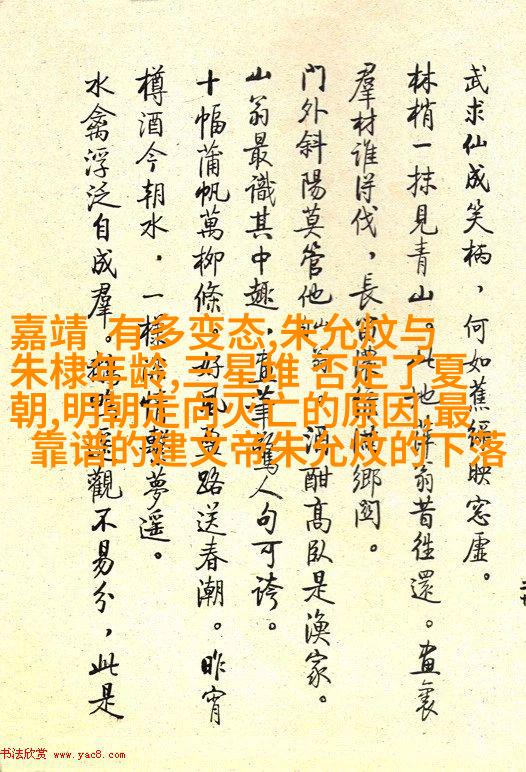 武求仙成笑柄，何如蕉綠映窓虛。
林梢一抹見青山。此地詩翁昔往還。畫裏
羣材誰得伐，長留滿鄉閭。
門外斜陽莫管他酒酣高臥是漁家。
山翁最識其中趣，畫筆驚人句可誇。
十幅蒲帆萬柳條。好風送春潮。昨宵
樽酒今朝水，一樣夢遙。
水禽浮泛自成羣。觀不易分，此是
嘉靖 有多变态,朱允炆与
朱棣年龄,三星堆 否定了夏
朝,明朝走向灭亡的原因,最
靠谱的建文帝朱允炆的下落
书法欣赏 www.yac8.com